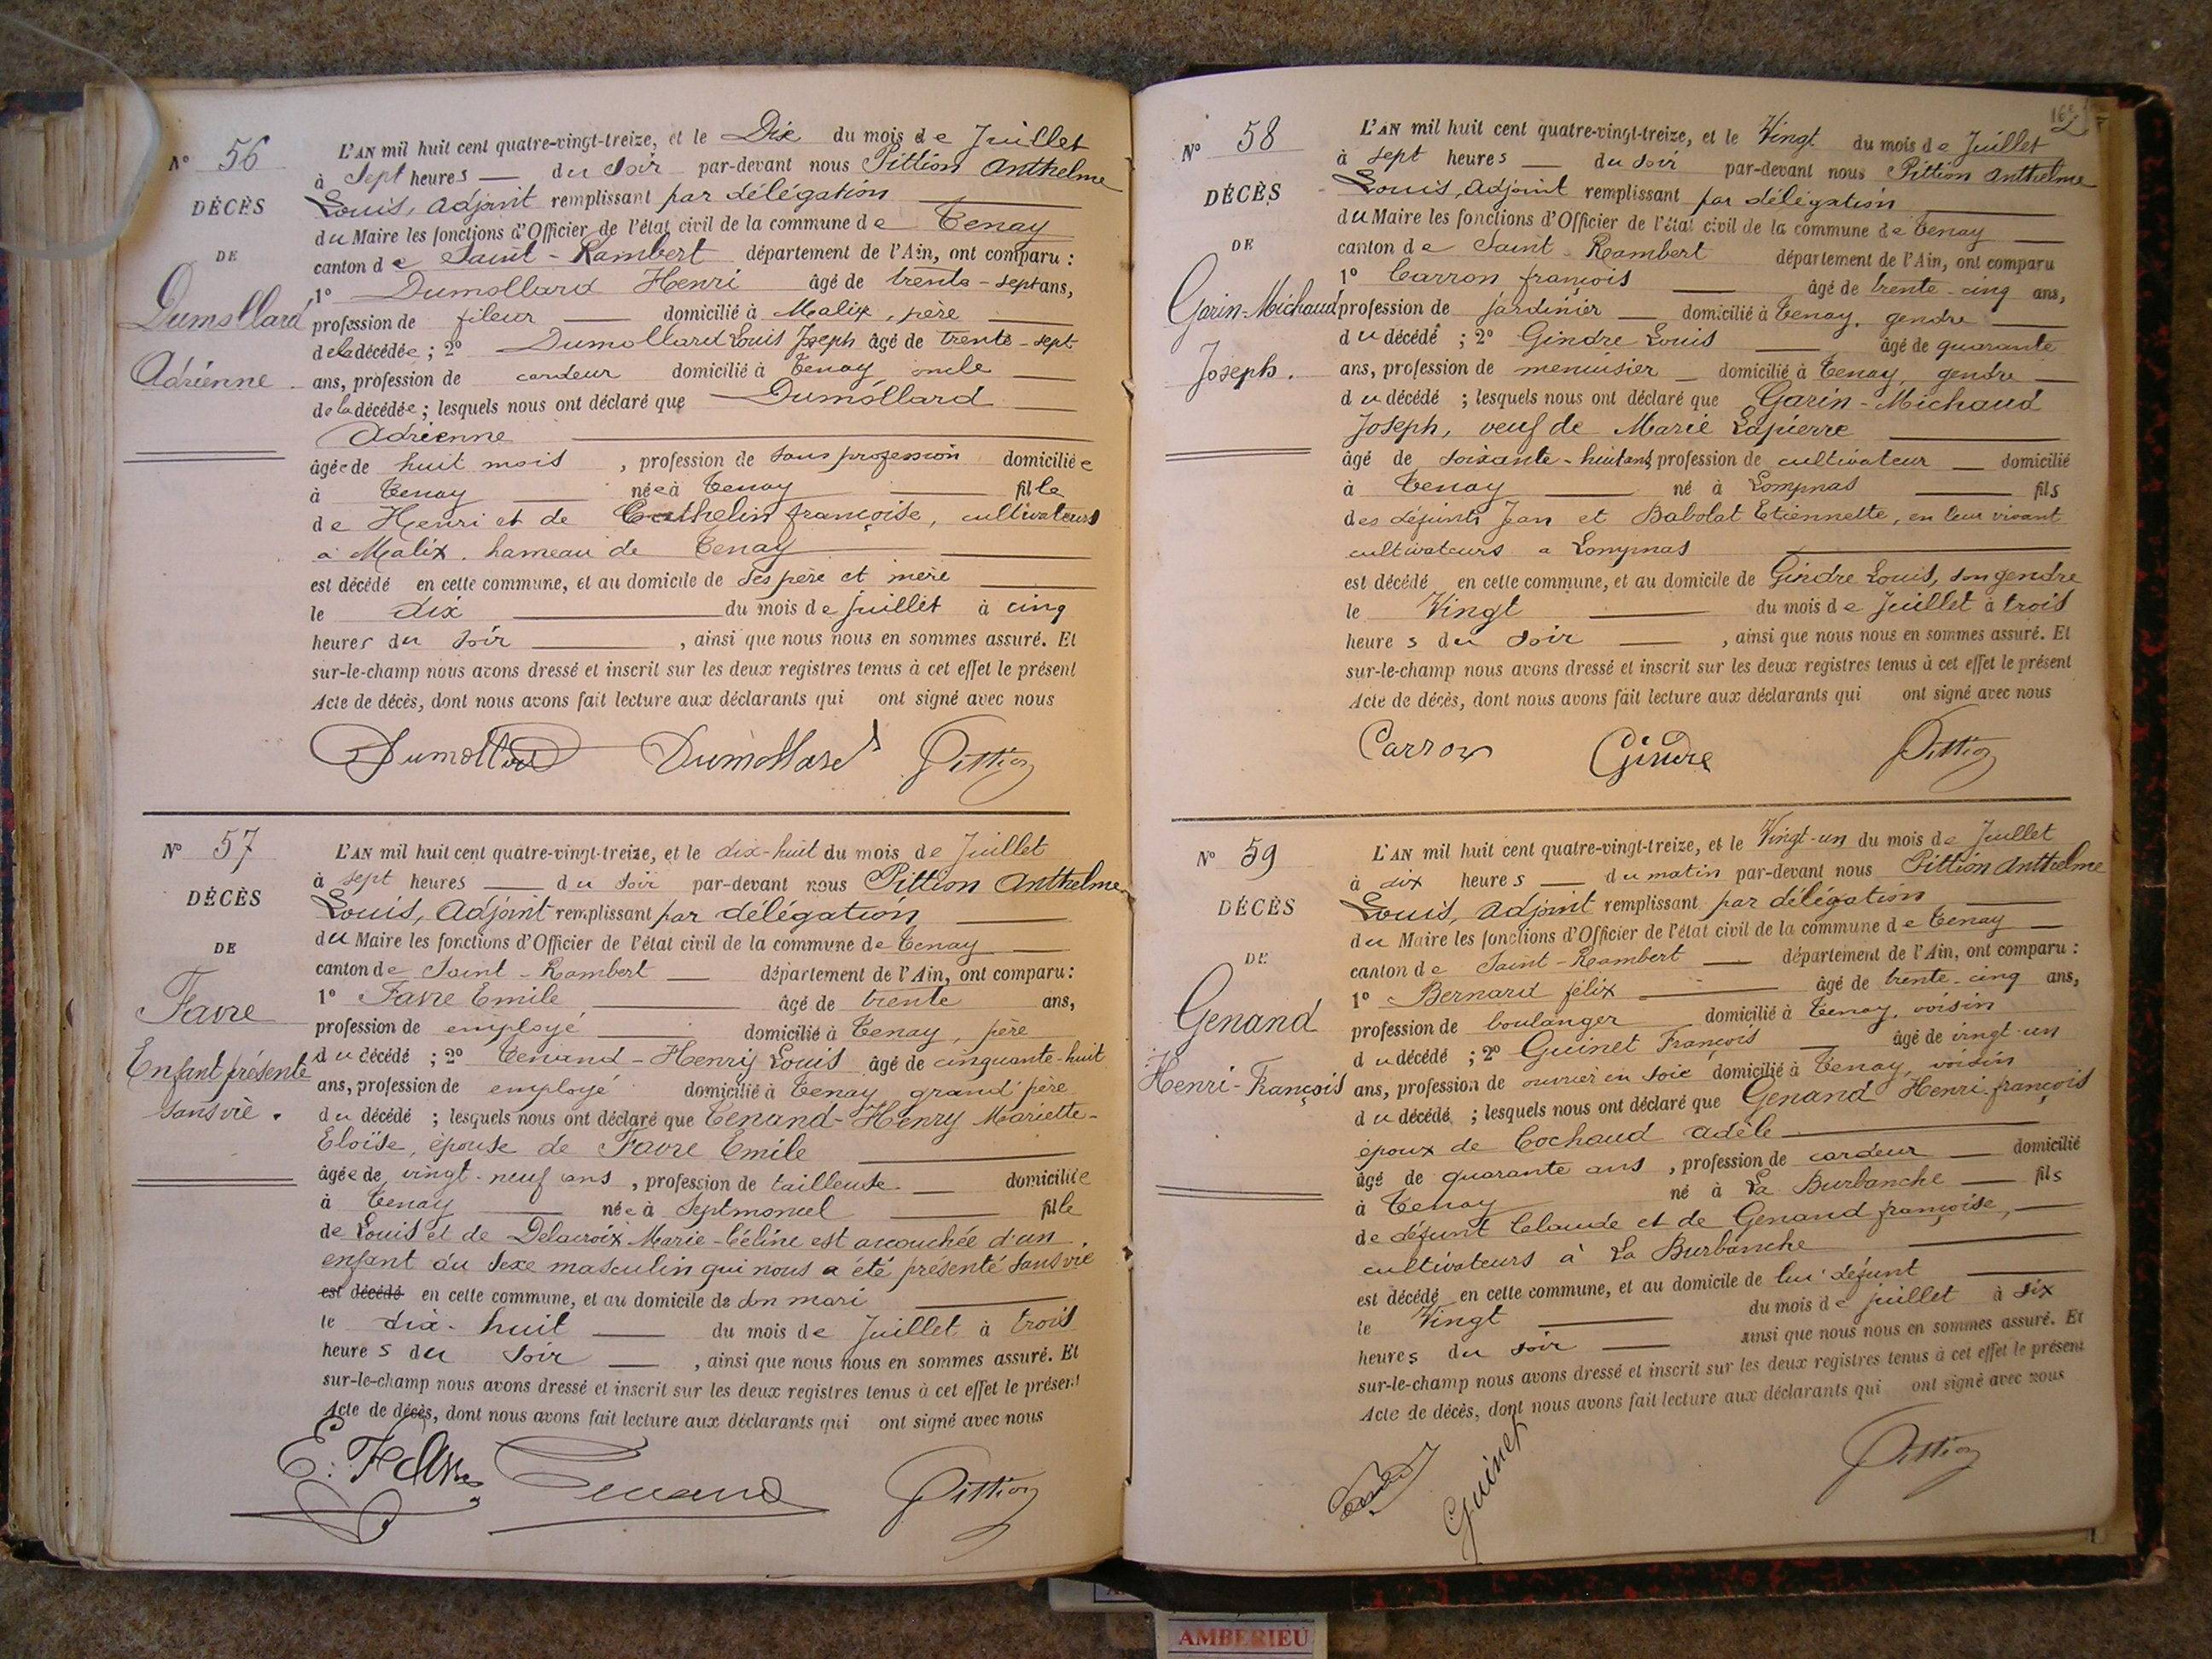 N° 56
DÉCÈS
DE
Dumollard
Adrienne.
L'AN mil huit cent quatre-vingt-treize, et le Dix du mois de Juillet
à Sept heures — du Soir par-devant nous Pittion Anthelme
Louis, Adjoint remplissant par délégation
du Maire les fonctions d'Officier de l'état civil de la commune de Tenay
canton de Saint-Rambert département de l'Ain, ont comparu :
1° Dumollard Henri âgé de trente-sept ans,
profession de fileur — domicilié à Malix, père
de la décédée ; 2° Dumollard Louis Joseph âgé de trente-sept
ans, profession de cardeur domicilié à Tenay oncle
de la décédée ; lesquels nous ont déclaré que Dumollard
Adrienne
âgée de huit mois , profession de sans profession domiciliée
à Tenay née à Tenay fille
de Henri et de françoise, cultivateurs
à Malix. hameau de Tenay
est décédé en cette commune, et au domicile de ses père et mère
le dix du mois de juillet à cinq
heures du soir , ainsi que nous nous en sommes assuré. Et
sur-le-champ nous avons dressé et inscrit sur les deux registres tenus à cet effet le présent
Acte de décès, dont nous avons fait lecture aux déclarants qui ont signé avec nous
Dumollard Dumollard Pittion
N° 57
DÉCÈS
DE
Favre
Enfant présenté
sans vie.
L'AN mil huit cent quatre-vingt-treize, et le dix-huit du mois de Juillet
à sept heures — du soir par-devant nous Pittion Anthelme
Louis, Adjoint remplissant par délégation
du Maire les fonctions d'Officier de l'état civil de la commune de Tenay
canton de Saint-Rambert — département de l'Ain, ont comparu :
1° Favre Emile âgé de trente ans,
profession de employé domicilié à Tenay, père
du décédé ; 2° Tenand-Henry Louis âgé de cinquante-huit
ans, profession de employé domicilié à Tenay grand père
du décédé ; lesquels nous ont déclaré que Tenand-Henry Mariette-
Eloïse, épouse de Favre Emile
âgée de vingt-neuf ans , profession de tailleuse — domiciliée
à Tenay née à Septmoncel fille
de Louis et de Delacroix Marie-Céline est accouchée d'un
enfant du sexe masculin qui nous a été présenté sans vie
est décédé en cette commune, et au domicile de son mari
le dix-huit — du mois de Juillet à trois
heures du soir — , ainsi que nous nous en sommes assuré. Et
sur-le-champ nous avons dressé et inscrit sur les deux registres tenus à cet effet le présent
Acte de décès, dont nous avons fait lecture aux déclarants qui ont signé avec nous
E. Favre Tenand Pittion
162
N° 58
DÉCÈS
DE
Garin-Michaud
Joseph.
L'AN mil huit cent quatre-vingt-treize, et le Vingt du mois de Juillet
à sept heures — du soir par-devant nous Pittion Anthelme
Louis, Adjoint remplissant par délégation
du Maire les fonctions d'Officier de l'état civil de la commune de Tenay
canton de Saint-Rambert département de l'Ain, ont comparu
1° Carron françois âgé de trente-cinq ans,
profession de jardinier — domicilié à Tenay, gendre
du décédé ; 2° Gindre Louis âgé de quarante
ans, profession de menuisier — domicilié à Tenay, gendre
du décédé ; lesquels nous ont déclaré que Garin-Michaud
Joseph, veuf de Marie Lapierre
âgé de soixante-huit ans, profession de cultivateur — domicilié
à Tenay né à Lompnas fils
des défunts Jean et Babolat Etiennette, en leur vivant
cultivateurs à Lompnas
est décédé en cette commune, et au domicile de Gindre Louis, son gendre
le Vingt du mois de Juillet à trois
heures du soir — , ainsi que nous nous en sommes assuré. Et
sur-le-champ nous avons dressé et inscrit sur les deux registres tenus à cet effet le présent
Acte de décès, dont nous avons fait lecture aux déclarants qui ont signé avec nous
Carron Gindre Pittion
N° 59
DÉCÈS
DE
Genand
Henri-François
L'AN mil huit cent quatre-vingt-treize, et le Vingt-un du mois de Juillet
à dix heures — du matin par-devant nous Pittion Anthelme
Louis, Adjoint remplissant par délégation
du Maire les fonctions d'Officier de l'état civil de la commune de Tenay
canton de Saint-Rambert — département de l'Ain, ont comparu :
1° Bernard félix âgé de trente-cinq ans,
profession de boulanger domicilié à Tenay, voisin
du décédé ; 2° Guinet François — âgé de vingt-un
ans, profession de ouvrier en soie domicilié à Tenay, voisin
du décédé ; lesquels nous ont déclaré que Genand Henri-françois
époux de Cochaud Adèle
âgé de quarante ans , profession de cardeur — domicilié
à Tenay né à La Burbanche — fils
de défunt Claude et de Genand françoise,
cultivateurs à La Burbanche
est décédé en cette commune, et au domicile de lui défunt
le Vingt du mois de juillet à six
heures du soir — ainsi que nous nous en sommes assuré. Et
sur-le-champ nous avons dressé et inscrit sur les deux registres tenus à cet effet le présent
Acte de décès, dont nous avons fait lecture aux déclarants qui ont signé avec nous
Guinet Pittion
AMBERIEU